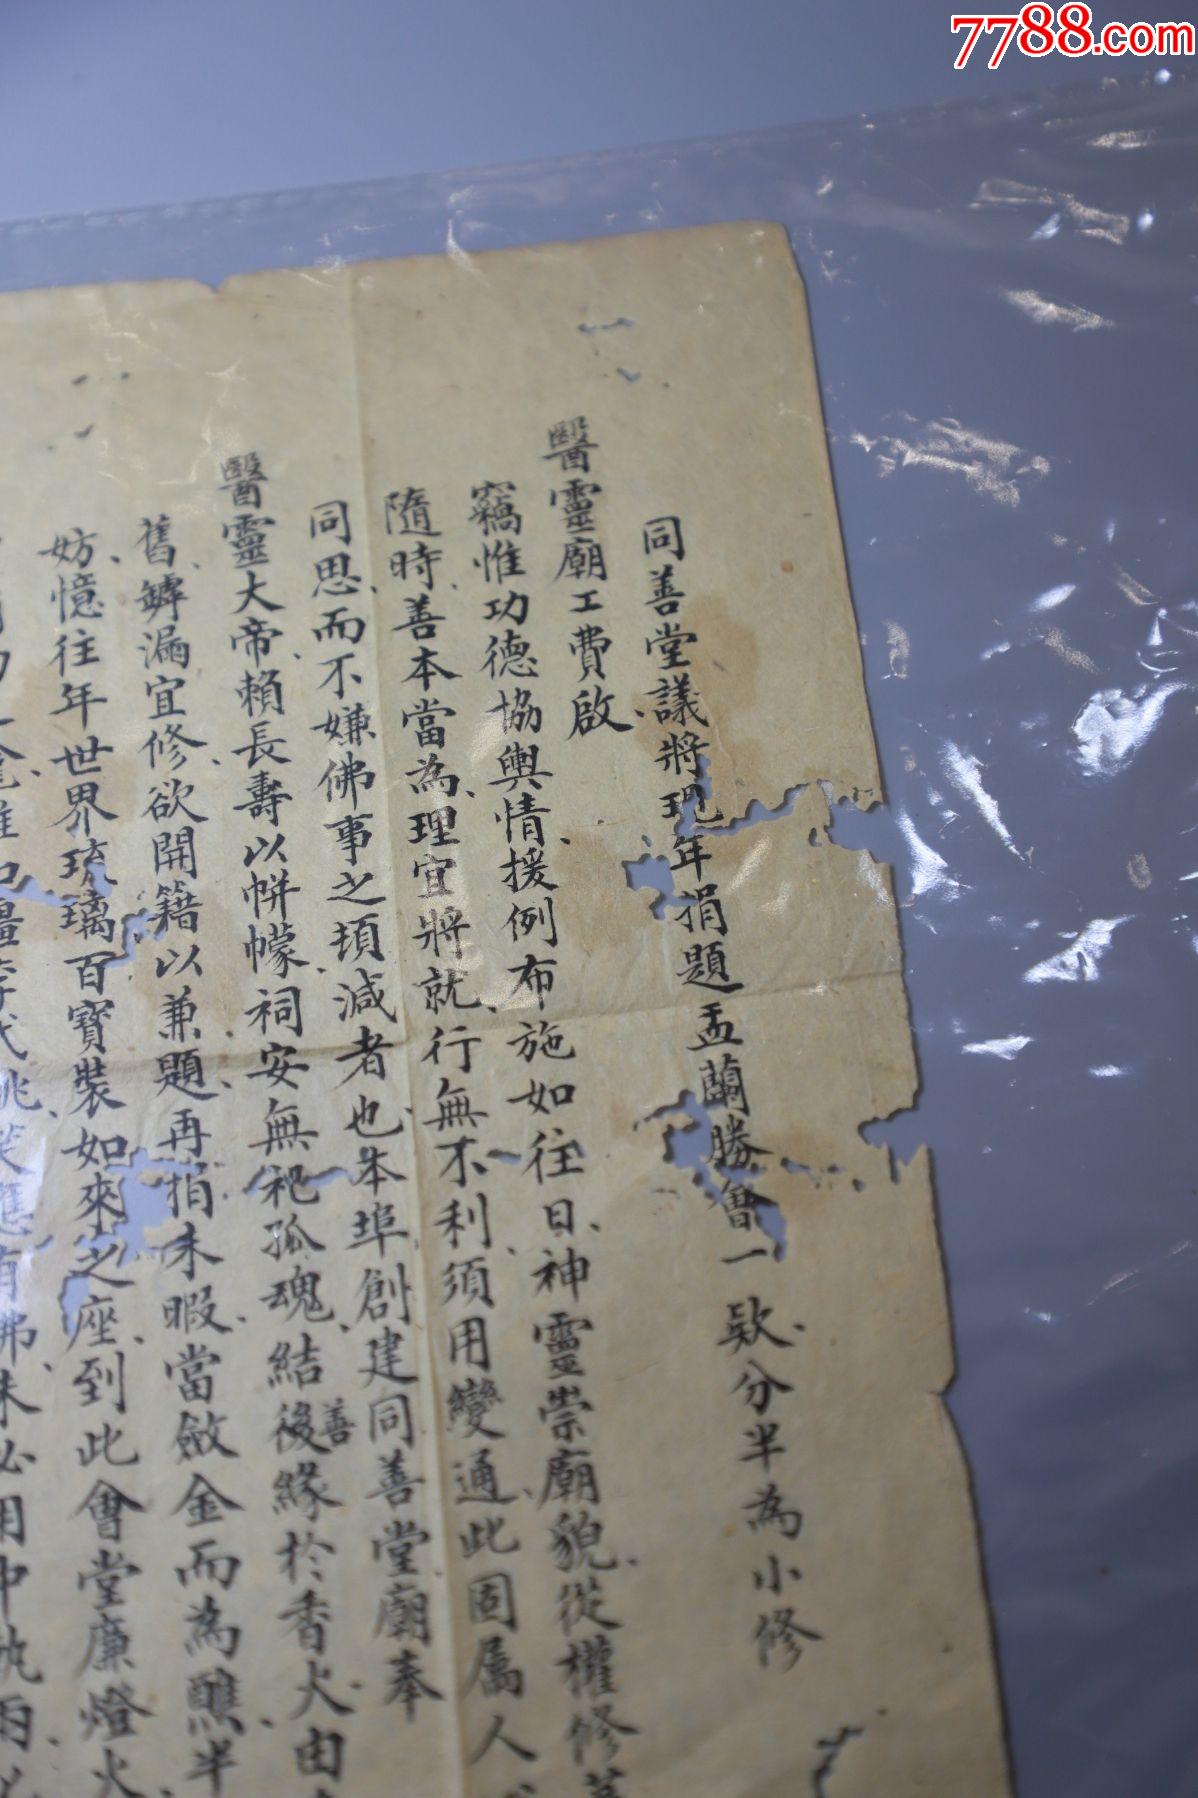 7788.com
同善堂議將現年捐題盂蘭勝會一欵分半為小修
醫靈廟工費啟
竊惟功德協輿情援例布施如往日神靈崇廟貌從權修
隨時善本當為理宜將就行無不利須用變通此固属人
同思而不嫌佛事之頃減者也本埠創建同善堂廟奉
醫靈大帝賴長壽以帡幪祠安無祀孤魂結後善緣於香火由
舊罅漏宜修欲開籍以兼題再捐未暇當斂金而為醮半
妨憶往年世界琉璃百寶裝如來之座到此會堂廉燈火
應有佛未必用中